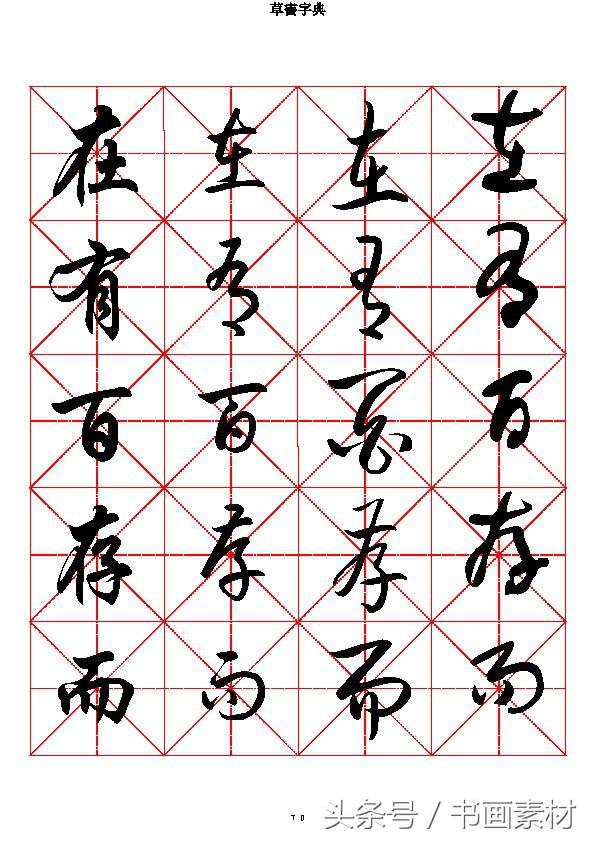 草書字典
在 在 在 在
有 有 有 有
百 百 百 百
存 存 存 存
而 而 而 而
头条号 / 书画素材